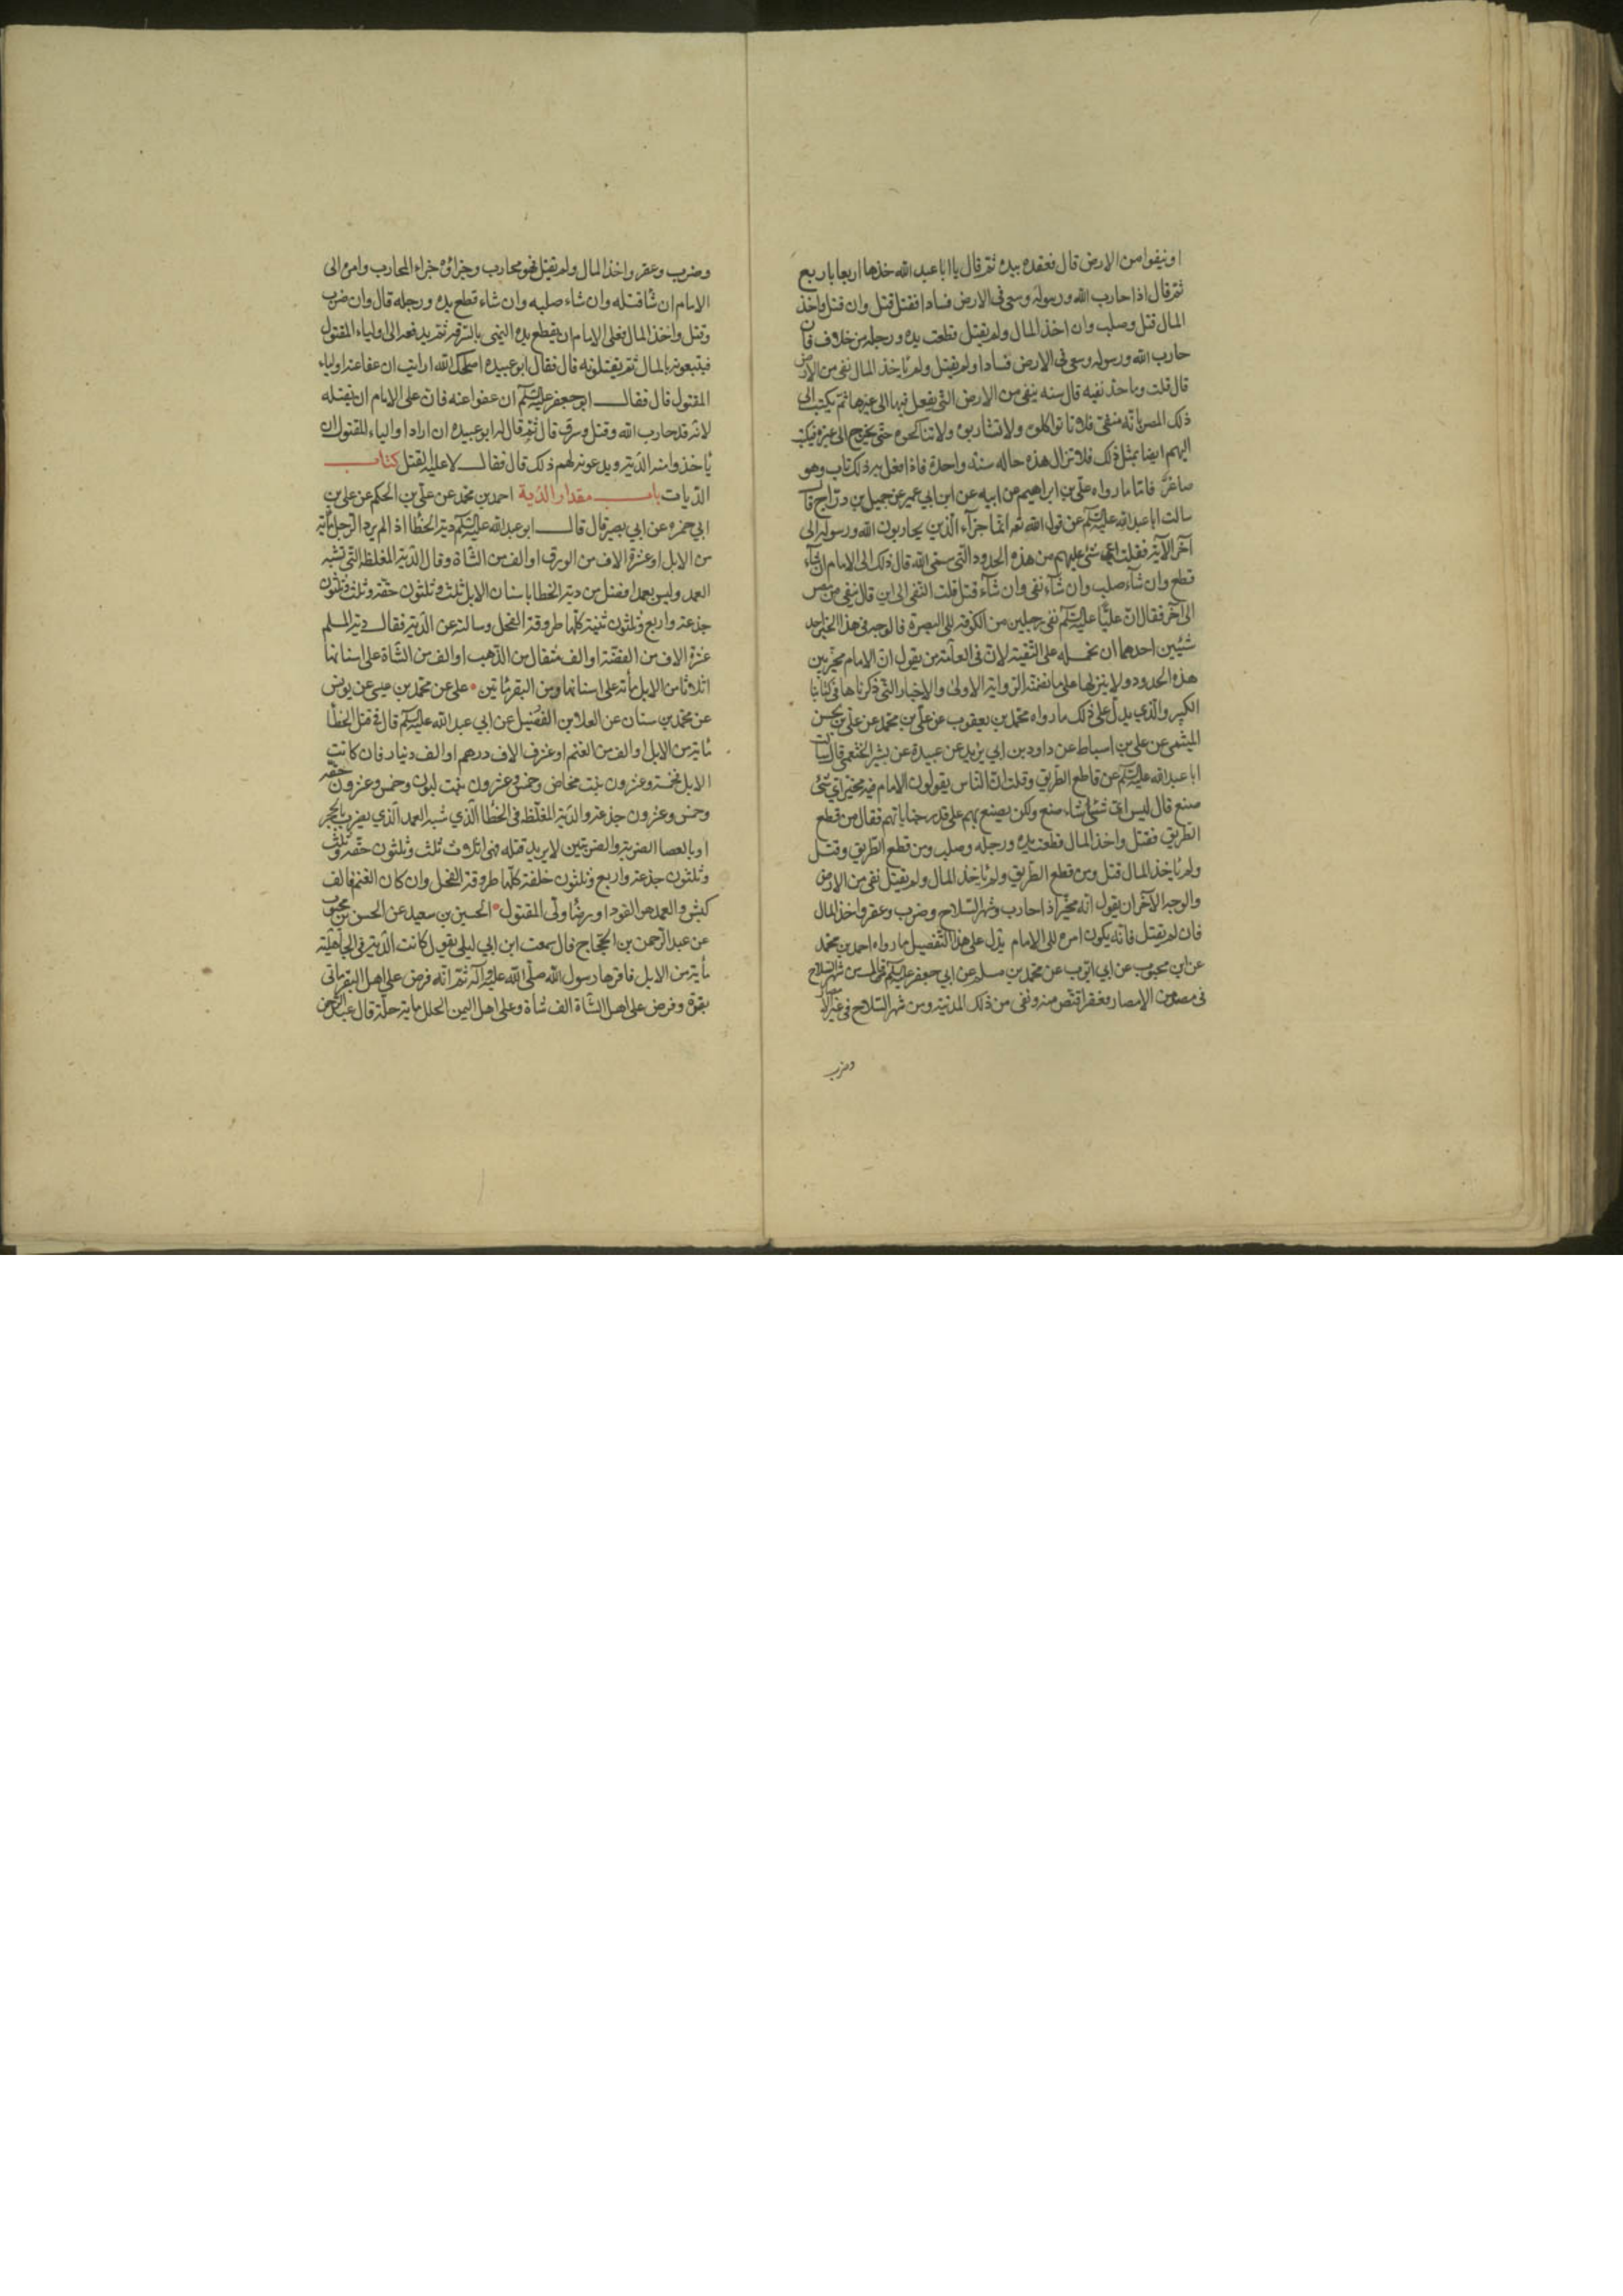 او ينفوا من الارض قال فعقده بيده ثم قال يا ابا عبد الله خذها اربعا باربع
ثم قال اذا حارب الله ورسوله وسعى فى الارض فسادا فقتل قتل وان قتل واخذ
المال قتل وصلب وان اخذ المال ولم يقتل قطعت يده ورجله من خلاف فان
حارب الله ورسوله وسعى فى الارض فسادا ولم يقتل ولم ياخذ المال نفى من الارض
قال قلت وما حد نفيه قال سنه ينفى من الارض التى يفعل فيها الى غيرها ثم يكتب الى
ذلك المصر بانه منفى فلا تواكلوه ولا تشاربوه ولا تناكحوه حتى يخرج الى غيره فيكتب
اليهم ايضا بمثل ذلك فلا تزال هذه حاله سنة واحدة فاذا فعل به ذلك تاب وهو
صاغر فاما ما رواه على بن ابراهيم عن ابيه عن ابن ابي عمير عن جميل بن دراج قال
سالت ابا عبد الله عليه السلام عن قول الله تعم انما جزآء الذين يحاربون الله ورسوله الى
آخر الآية فقلت اى شئ عليهم من هذه الحدود التى سمى الله قال ذلك الى الامام ان شآء
قطع وان شآء صلب وان شآء نفى وان شآء قتل قلت النفى الى اين قال ينفى من مصر
الى آخر فقال ان عليا عليه السلام نفى رجلين من الكوفة الى البصرة فالوجه فى هذا الخبر احد
شيئين احدهما ان نحمله على التقية لان فى العامة من يقول ان الامام مخير بين
هذه الحدود ولا ينزلها على ما تضمنته الرواية الاولى والاخبار التى ذكرناها فى كتابنا
الكبير والذي يدل على ذلك ما رواه محمد بن يعقوب عن على بن محمد عن على بن الحسن
الميثمى عن على بن اسباط عن داود بن ابي يزيد عن عبيدة عن بشير الخثعمى قال سالت
ابا عبد الله عليه السلام عن قاطع الطريق وقلت ان الناس يقولون الامام فيه مخير اى شئ
صنع قال ليس اى شئ شاء صنع ولكن يصنع بهم على قدر جناياتهم فقال من قطع
الطريق فقتل واخذ المال قطعت يده ورجله وصلب ومن قطع الطريق وقتل
ولم ياخذ المال قتل ومن قطع الطريق ولم ياخذ المال ولم يقتل نفى من الارض
والوجه الآخر ان يقول انه مخير اذا حارب وشهر السلاح وضرب وعقر واخذ المال
فان لم يقتل فانه يكون امره الى الامام يدل على هذا التفصيل ما رواه احمد بن محمد
عن ابن محبوب عن ابي ايوب عن محمد بن مسلم عن ابي جعفر عليه السلام قال من شهر السلاح
فى مصر من الامصار فعقر اقتص منه ونفى من ذلك المدينة ومن شهر السلاح فى غير
وضرب
وضرب وعقر واخذ المال ولم يقتل فهو محارب وجزاؤه جزاء المحارب وامره الى
الامام ان شا قتله وان شاء صلبه وان شاء قطع يده ورجله قال وان ضرب
وقتل واخذ المال فعلى الامام ان يقطع يده اليمنى بالسرقة ثم يدفعه الى اولياء المقتول
فيتبعونه بالمال ثم يقتلونه قال فقال ابو عبيده اصلحك الله ارايت ان عفا عنه اولياء
المقتول قال فقال ابو جعفر عليه السلام ان عفوا عنه فان على الامام ان يقتله
لانه قد حارب الله وقتل وسرق قال ثم قال له ابو عبيده ان اراد اولياء المقتول ان
ياخذوا منه الدية ويدعونه لهم ذلك قال فقال لا عليه القتل كتاب
الديات باب مقدار الدية احمد بن محمد عن على بن الحكم عن على بن
ابي حمزه عن ابي بصير قال قال ابو عبد الله عليه السلام دية الخطا اذا لم يرد الرجل مائة
من الابل او عشرة الاف من الورق او الف من الشاة وقال الدية المغلظة التى تشبه
العمد وليس بعمد افضل من دية الخطا باسنان الابل ثلث وثلثون حقة وثلث وثلثون
جذعة واربع وثلثون ثنية كلها طروقة الفحل وسالته عن الدية فقال دية المسلم
عشرة الاف من الفضة او الف مثقال من الذهب او الف من الشاة على اسنانها
اثلاثا من الابل مأة على اسنانها ومن البقر مأتين على عن محمد بن عيسى عن يونس
عن محمد بن سنان عن العلا بن الفضيل عن ابي عبد الله عليه السلام قال فى قتل الخطا
مأية من الابل او الف من الغنم او عشرة الاف درهم او الف دينار فان كانت
الابل فخمسة وعشرون بنت مخاض وخمس وعشرون بنت لبون وخمس وعشرون حقه
وخمس وعشرون جذعة والدية المغلظة فى الخطا الذي شبه العمد الذي يضرب بالحجر
او بالعصا الضربة والضربتين لا يريد قتله فهى اثلاث ثلث وثلثون حقه وثلث
وثلثون جذعة واربع وثلثون خلفة كلها طروقة الفحل وان كان الغنم فالف
كبش والعمد هو القود او رضا ولى المقتول الحسين بن سعيد عن الحسن بن محبوب
عن عبد الرحمن بن الحجاج قال سمعت ابن ابي ليلى يقول كانت الدية فى الجاهلية
مأية من الابل فاقرها رسول الله صلى الله عليه وآله ثم انه فرض على اهل البقر مأتى
بقرة وفرض على اهل الشاة الف شاة وعلى اهل اليمن الحلل ماية حلة قال عبد الرحمن